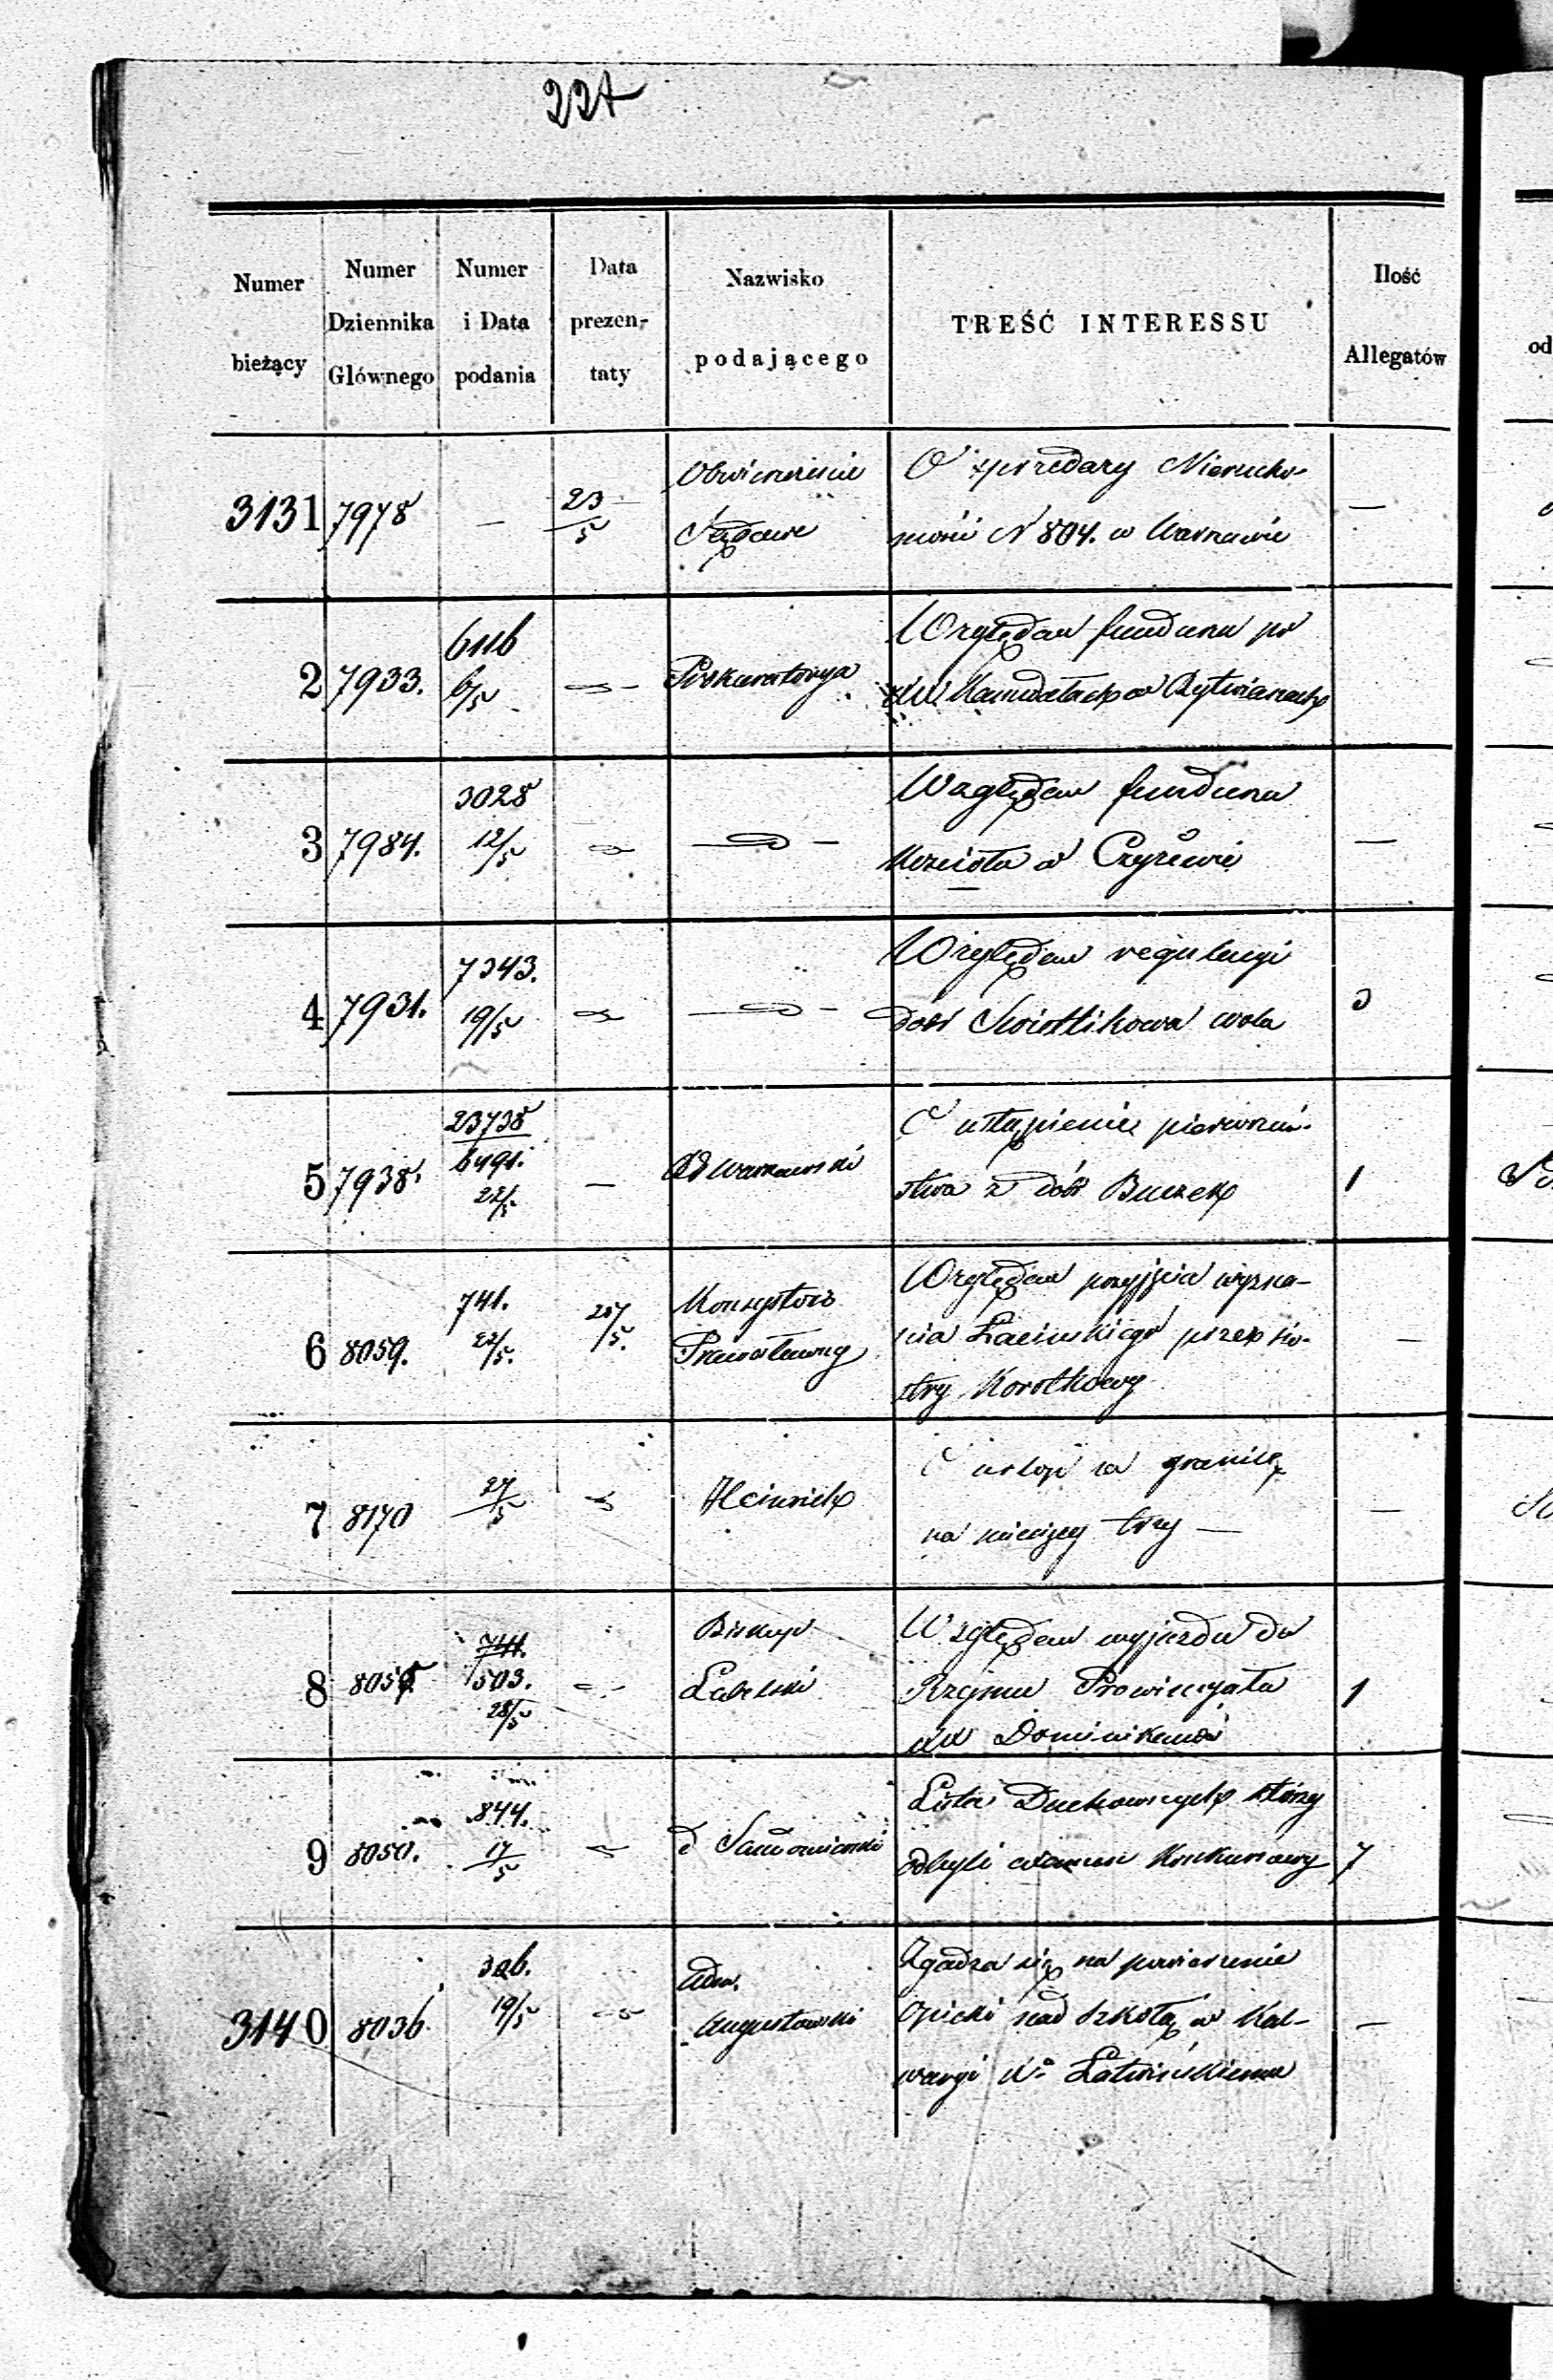 224
Numer bieżący
Numer Dziennika Głównego
Numer i Data podania
Data prezen- taty
Nazwisko podającego
TREŚĆ INTERESSU
Ilość Allegatów
3131 7978 — 23/5 Obwieszczenie Sądowe
O sprzedaży Nierucho-
mości N 804. w Warszawie —
2 7933. 6116 6/5 Prokuratorya
Względem funduszu po
XX. Kamedułach w Rytwianach
3 7984. 3028 12/5
Względem funduszu
Kościoła w Czyżewie —
4 7931. 7343. 19/5
Względem regulacyi
dóbr Świetlikowa wola 3
5 7938. 23738/6491. 22/5 — Ad Warszawski
O ustąpienie pierwszeń-
stwa z dóbr Buczek 1
6 8059. 741. 22/5. 27/5. Konsystorz Prawosławny
Względem przyjęcia wyzna-
nia Łacińskiego przez sio-
stry Korotkowy —
7 8170 27/5 Heinrich
O urlop za granicę
na miesięcy trzy — —
8 805 741. 503. 28/5 Biskup Lubelski
Względem wyjazdu do
Rzymu Prowincyała
XX Dominikanów 1
9 8050. 844. 17/5 d Sandomierski
Lista Duchownych którzy
odbyli examen Konkursowy 7
3140 8036 306. 19/5 Adm. Augustowski
Zgadza się na powierzenie
Opieki nad szkołą w Kal-
waryi X. —